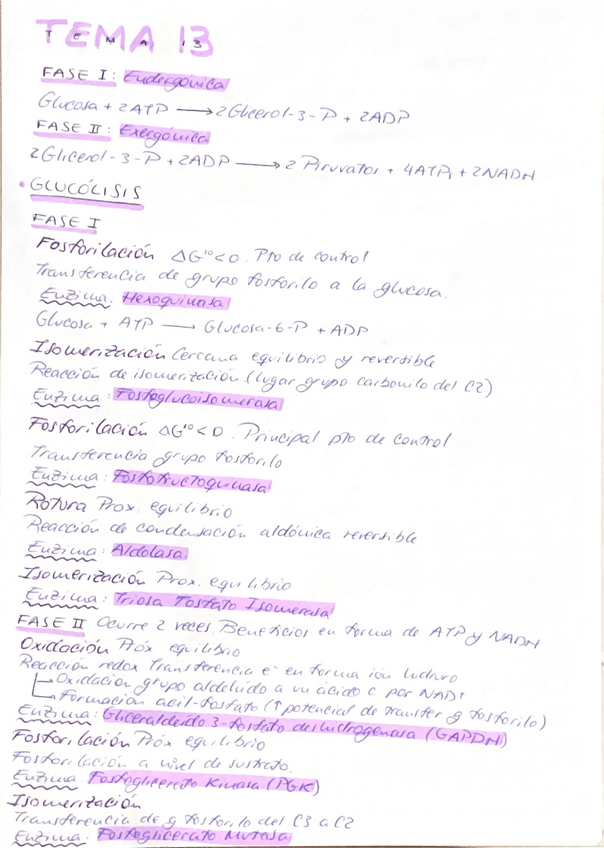 TEMA 13
TEMA 13
FASE I: Endergónica
Glucosa + 2ATP → 2Glicerol-3-P + 2ADP
FASE II: Exergónica
2Glicerol-3-P + 2ADP → 2 Piruvatos + 4ATP, + 2NADH
• GLUCÓLISIS
FASE I
Fosforilación ΔG'º<0. Pto de control
Transferencia de grupo fosforilo a la glucosa.
Enzima: Hexoquinasa
Glucosa + ATP → Glucosa-6-P + ADP
Isomerización Cercana equilibrio y reversible
Reacción de isomerización (lugar grupo carbonilo del C2)
Enzima: Fosfoglucoisomerasa
Fosforilación ΔG'º<0. Principal pto de control
Transferencia grupo fosforilo
Enzima: Fosfofructoquinasa
Rotura Prox. equilibrio
Reacción de condensación aldónica reversible
Enzima: Aldolasa
Isomerización Prox. equilibrio
Enzima: Triosa Fosfato Isomerasa
FASE II Ocurre 2 veces. Beneficios en forma de ATP y NADH
Oxidación Próx equilibrio
Reacción redox Transferencia e⁻ en forma ión hidruro
→ Oxidación grupo aldehído a un ácido c por NAD+
→ Formación acil-fosfato (↑ potencial de transfer g fosforilo)
Enzima: Gliceraldeído 3-fosfato deshidrogenasa (GAPDH)
Fosforilación Próx equilibrio
Fosforilación a nivel de sustrato.
Enzima: Fosfoglicerato Kinasa (PGK)
Isomerización
Transferencia de g fosforilo del C3 a C2
Enzima: Fosfoglicerato Mutasa